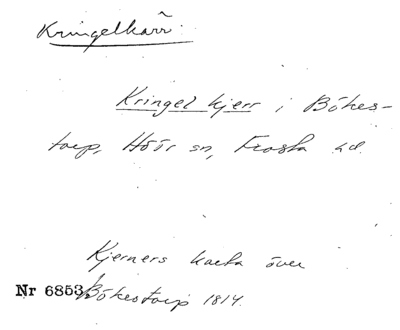 Kringelkärr.
Kringel kjerr i Bökes-
torp, Höör sn, Frosta hd.
Kjerners karta över
Nr 6853 Bökestorp 1814.